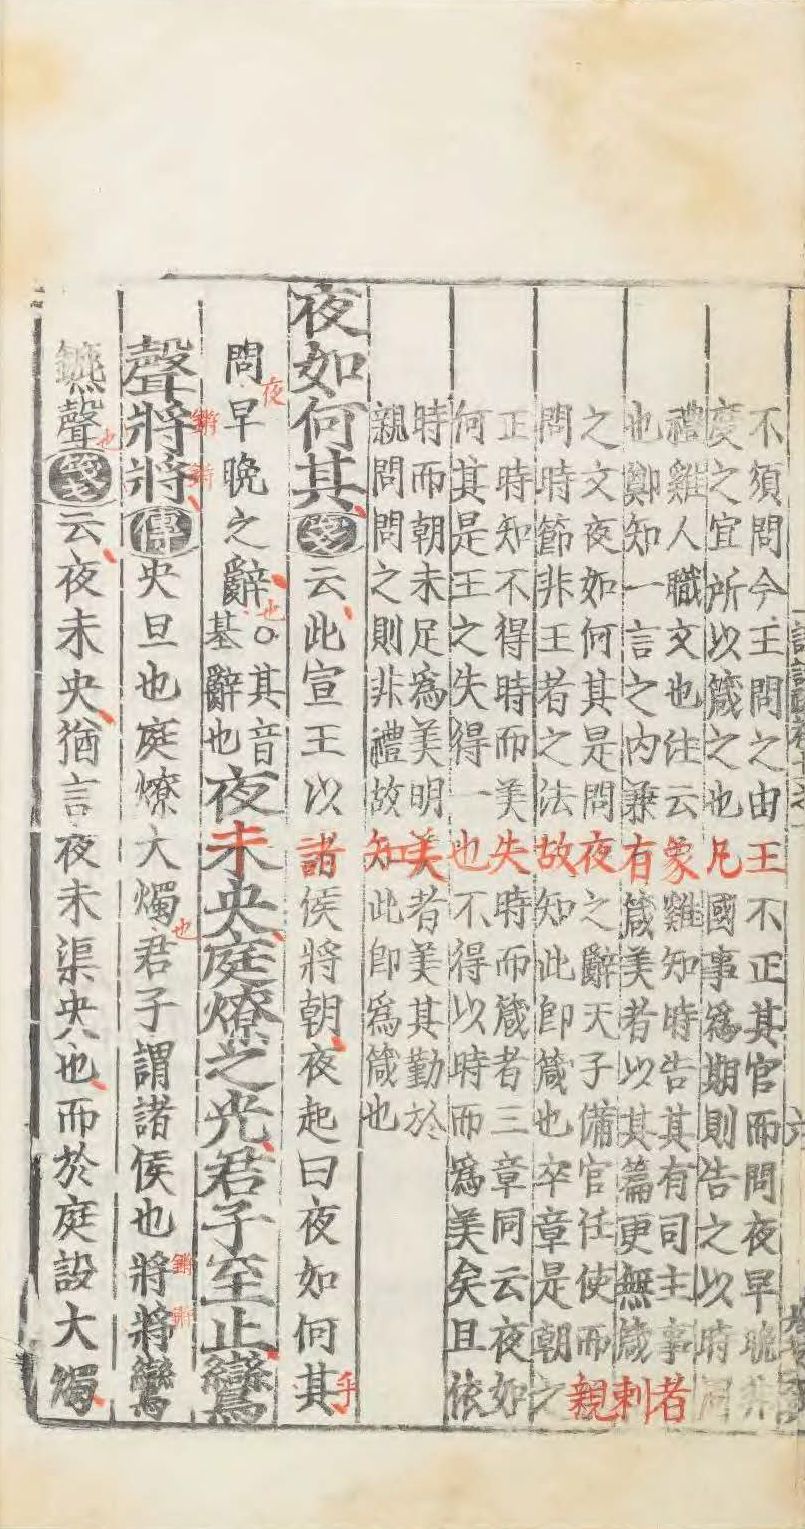 不須問今王問之由王不正其官而問夜早晚非
變之宜所以箴之也凡國事爲期則告之以時
禮雞人職文也注云象雞知時告其有司主事者
也鄭知一言之內兼有箴美者以其篇更無箴刺
之文夜如何其是問夜之辭天子備官任使而親
問時節非王者之法故知此卽箴也卒章是朝之
正時知不得時而美失時而箴者三章同云夜如
何其是王之失得一也不得以時而爲美矣且依
時而朝未足爲美明美者美其勤於
親問問之則非禮故知此卽爲箴也
夜如何其箋云此宣王以諸侯將朝夜起曰夜如何其乎
問夜早晚之辭也○其音
基辭也夜未央庭燎之光君子至止鸞
聲將將鏘鏘傳央旦也庭燎大燭也君子謂諸侯也將將鏘鏘鸞
鑣聲也箋云夜未央猶言夜未渠央也而於庭設大燭